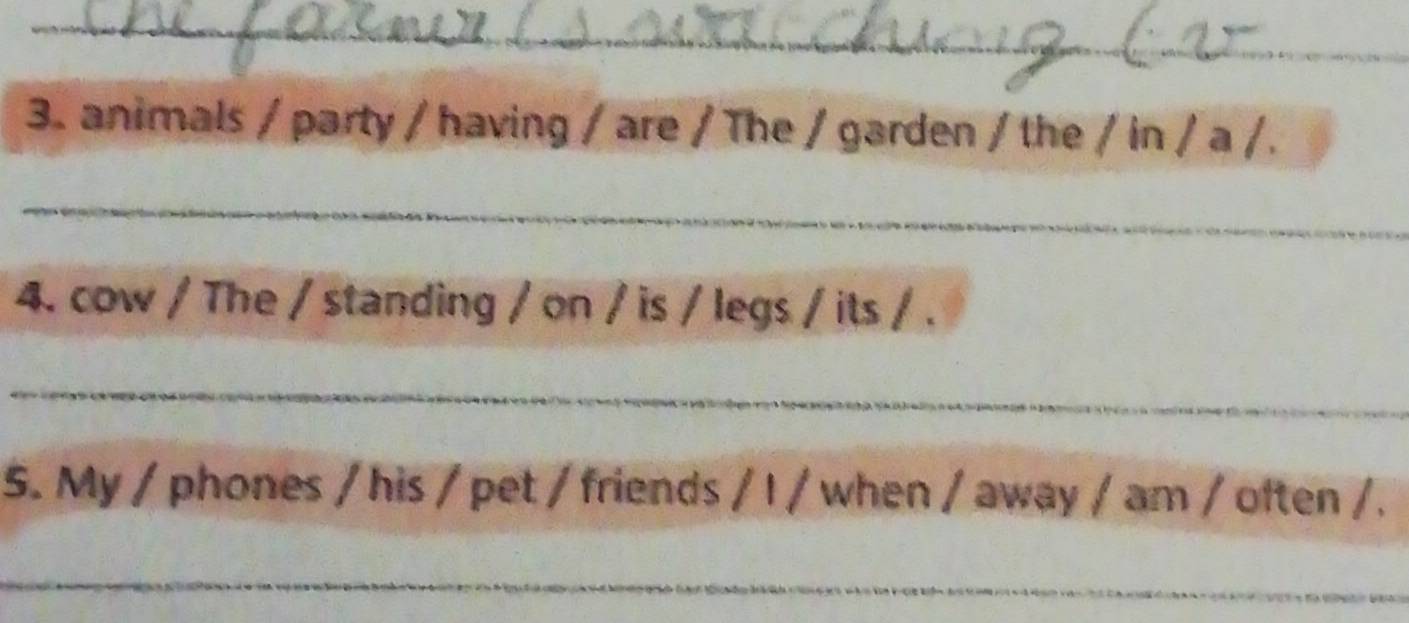 the farmer is watching
3. animals / party / having / are / The / garden / the / in / a /.
4. cow / The / standing / on / is / legs / its / .
5. My / phones / his / pet / friends / I / when / away / am / often /.